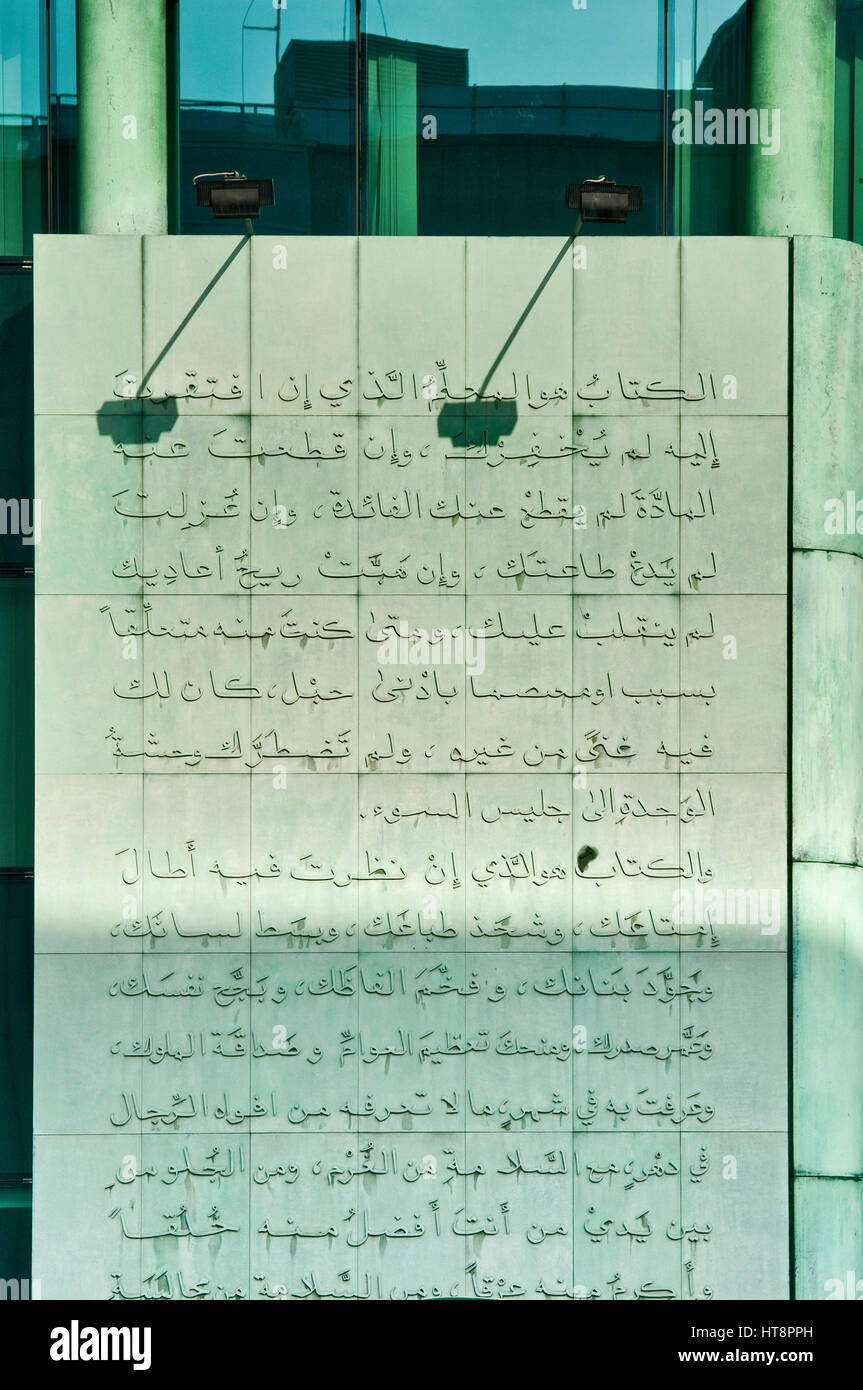 الكتابُ هو المعلِّمُ الَّذي إن افتقرتَ
إليه لم يُخْفِرْكَ، وإن قطعتَ عنه
المادَّةَ لم يقطعْ عنك الفائدة، وإن عُزِلتَ
لم يَدَعْ طاعتَك، وإن هَبَّتْ ريحُ أعاديك
لم ينقلبْ عليك، ومتى كنتَ منه متعلِّقاً
بسبب او معتصما بأدْنى حبْل، كان لك
فيه غنىً من غيره، ولم تَضطَرَّك وحشةُ
الوَحدةِ الى جليس السوء.
والكتابُ هو الَّذي إنْ نظرتَ فيه أَطالَ
إمتاعَك، وشحَذ طباعَك، وبسَط لسانَك،
وجوَّدَ بَنانك، وفخَّمَ الفاظَك، وبَجَّح نفسَك،
وعَمَّر صدرك، ومنحكَ تعظيمَ العوامِّ وصَداقَةَ الملوك،
وعَرفتَ به في شهرٍ، ما لا تعرفه من افواه الرِّجال
في دهْرٍ، مع السَّلامةِ من الغُرْم، ومن الجُلوسِ
بين يديْ من أنتَ أفضلُ منه خُلُقاً
وأكرمُ منه عِرْقاً، ومن السَّلامةِ من مجالسَة
alamy
HT8PPH
www.alamy.com